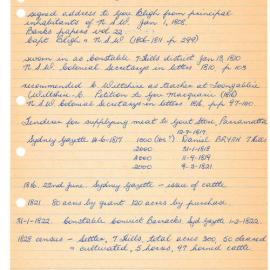 signed address to Gov. Bligh from principal
inhabitants of N.S.W. Jan 1, 1808.
Banks papers vol 22
Capt Bligh = N.S.W. (1806-1811 p. 299)
sworn in as Constable 7 Hills district Jan 13, 1810
N.S.W. Colonial Secretarys in letters 1810 p 103
recommended C. Wiltshire as teacher at Toongabbie
(Wiltshire C. Petition to Gov Macquarie 1816)
N.S.W. Colonial Secretarys in letters 1816, p.p 97-100.
Tenderer for supplying meat to Govt Store, Parramatta
Sydney Gazette 1000 (lbs?) Daniel BRYAN 7 Hills
2000 31-1-1818
2000 11-9-1819
2000 9-3-1821
1816. 22nd June. Sydney Gazette - issue of cattle
1821 80 acres by grant 120 acres by purchase.
31-1-1822. Constable Convict Barracks Syd Gazette 1-2-1822.
1828 census - Settler, 7 Hills, total acres 300, 50 cleared
= cultivated, 5 horses, 47 horned cattle